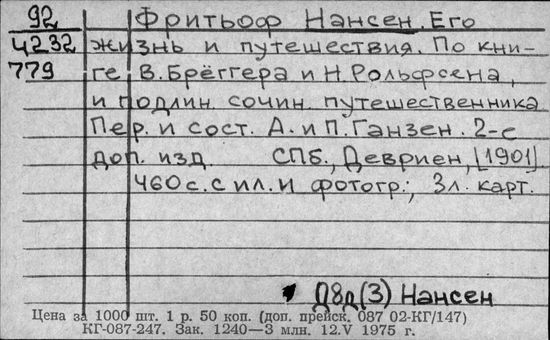 92 Фритьоф Нансен. Его
4232 жизнь и путешествия. По кни-
779 ге В. Брёггера и Н. Рольфсена,
и подлин. сочин. путешественника
Пер. и сост. А. и П. Ганзен. 2-е
доп. изд. СПб., Девриен, [1901]
460 с. с ил. и фотогр.; 3 л. карт.
Д8д(3) Нансен
Цена за 1000 шт. 1 р. 50 коп. (доп. прейск. 087 02-КГ/147)
КГ-087-247. Зак. 1240—3 млн. 12.V 1975 г.